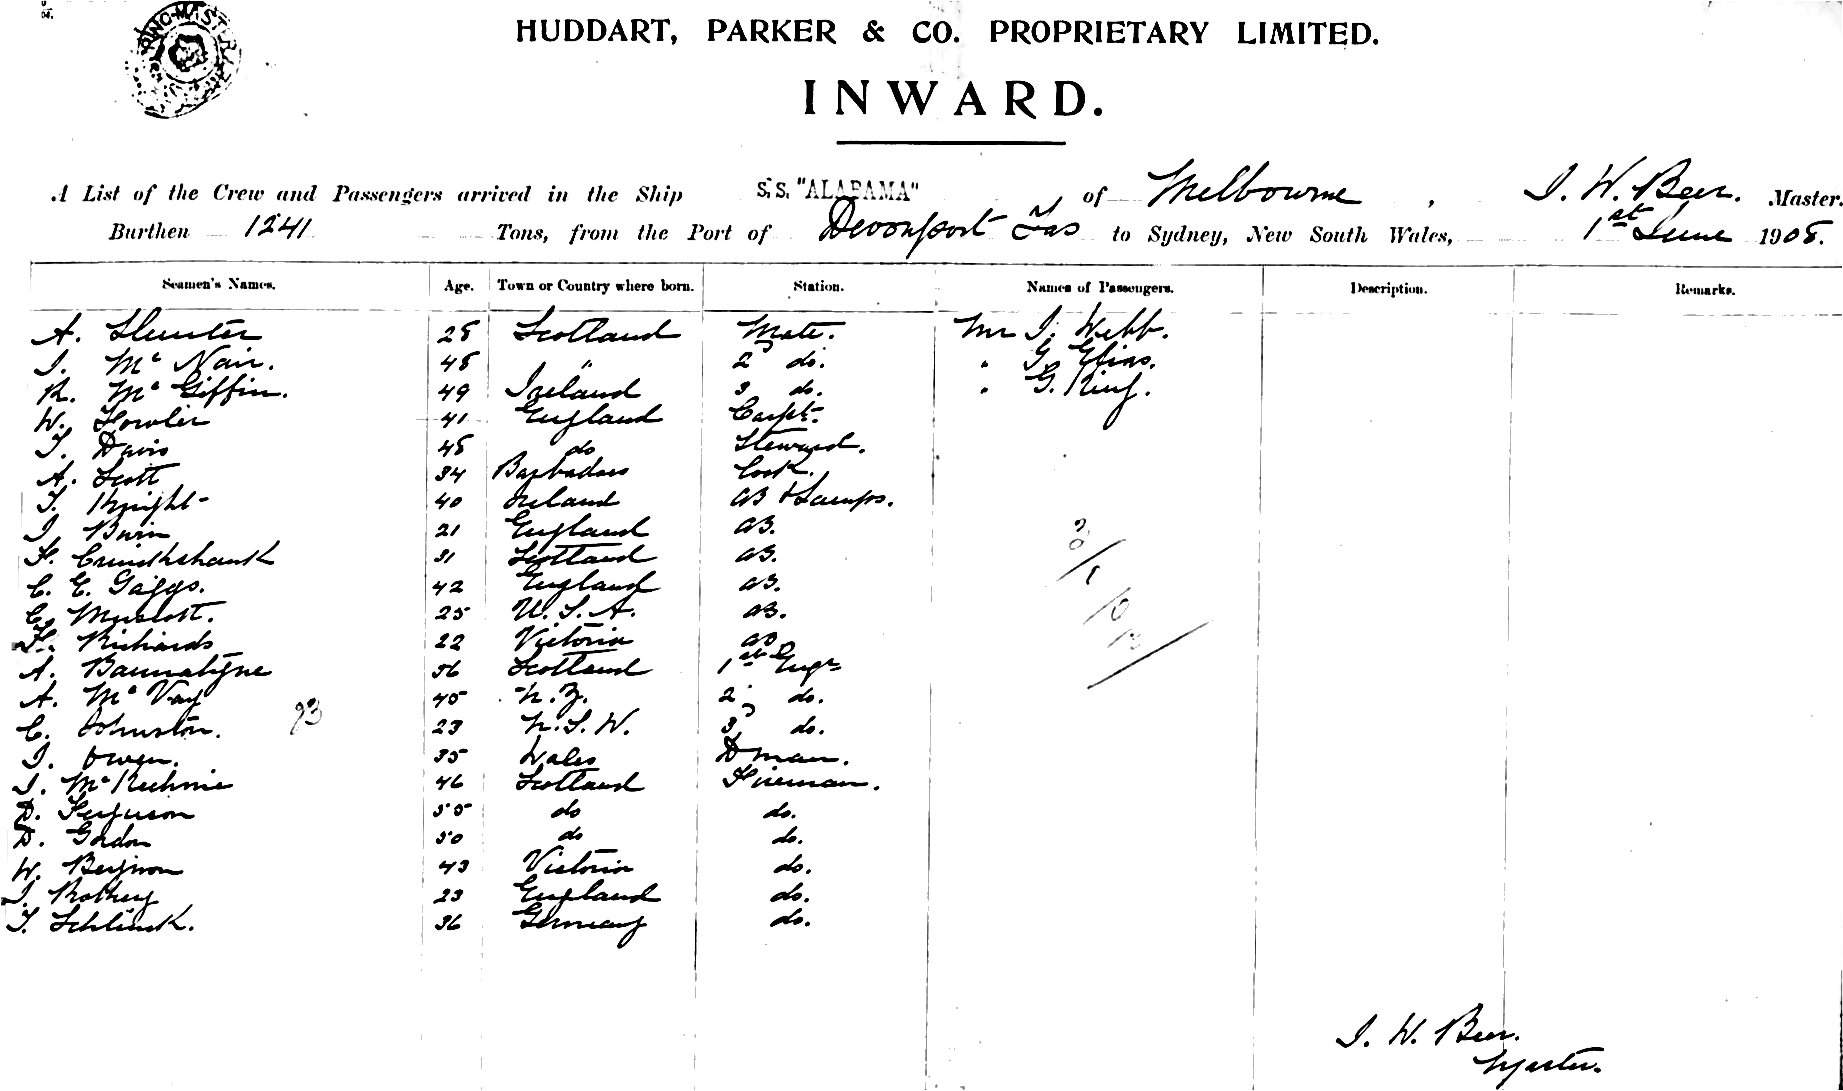 HUDDART, PARKER & CO. PROPRIETARY LIMITED.
INWARD.
A List of the Crew and Passengers arrived in the Ship S.S. "ALABAMA" of Melbourne, J. W. Beer. Master.
Burthen 1241 Tons, from the Port of Devonport Tas to Sydney, New South Wales, 1st June 1908.
Seamen's Names. Age. Town or Country where born. Station. Names of Passengers. Description. Remarks.
A. Hunter 28 Scotland Mate. Mr J. Webb.
J. McNair. 48 " 2 do. " G. Elias.
R. McGiffin. 49 Ireland 3 do. " G. King.
W. Fowler 41 England Carpt.
T. Davis 48 do Steward.
A. Scott 34 Barbadoes Cook.
T. Knight 40 Ireland AB & Lamps.
J. 21 England AB.
F. Cruickshank 31 Scotland AB.
C. E. Gaggs. 42 England AB.
C. 25 U.S.A. AB.
F. Richards 22 Victoria AB
A. Bannatyne 56 Scotland 1st Engr
A. McVay 45 N.Z. 2 do.
C. Johnston. 23 N.S.W. 3 do.
J. Owen. 35 Wales Dman.
J. McKechnie 46 Scotland Fireman.
D. Ferguson 55 do do.
D. Gordon 50 do do.
W. 43 Victoria do.
J. Rothery 23 England do.
T. Schlinck. 36 Germany do.
23
J. W. Beer.
Master.